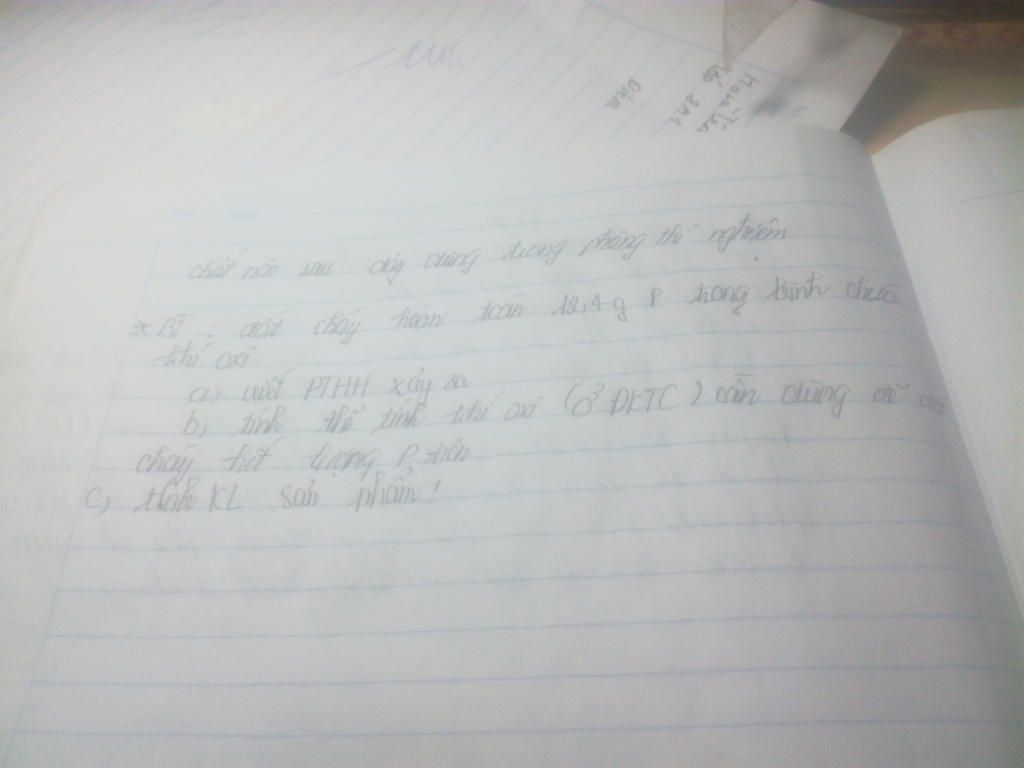 Điểm
Họ và Tên
Lớp 8A1
chất nào sau đây dùng trong phòng thí nghiệm
* BT : đốt cháy hoàn toàn 12,4 g P trong bình chứa
khí oxi
a) viết PTHH xảy ra
b) tính thể tính khí oxi (ở ĐKTC) cần dùng để đốt
cháy hết lượng P trên
c) tính KL sản phẩm!